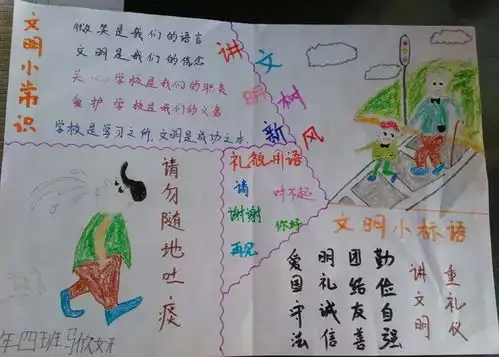 文明小常识
微笑是我们的语言
文明是我们的信念
关心学校是我们的职责
爱护学校是我们的义务
学校是学习之所,文明是成功之本.
讲文明树新风
礼貌用语
请
对不起
谢谢
你好
再见
请勿随地吐痰
文明小标语
爱国守法
明礼诚信
团结友善
勤俭自强
讲文明
重礼仪
年四班